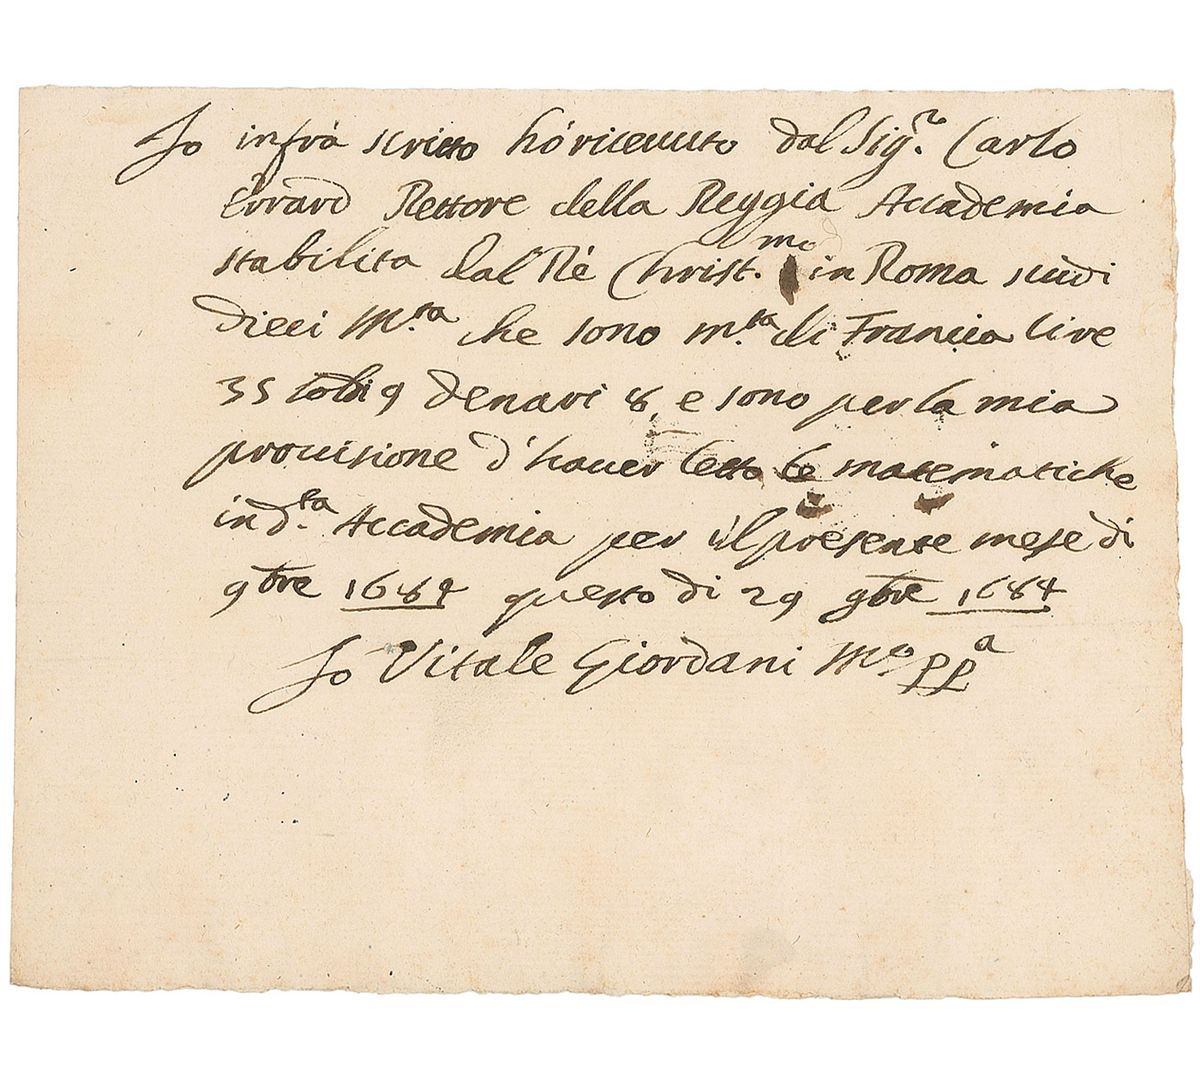 Io infrà scritto hò riceuuto dal Sig.re Carlo
Errard Rettore della Reggia Accademia
stabilita dal Rè Christ.mo in Roma scudi
dieci m.ta che sono m.ta di Francia lire
35 soldi 9 denari 8, e sono per la mia
prouisione d'hauer letto le matematiche
in d.ta Accademia per il presente mese di
9bre 1684 questo di 29 9bre 1684
Io Vitale Giordani M.o pp.a